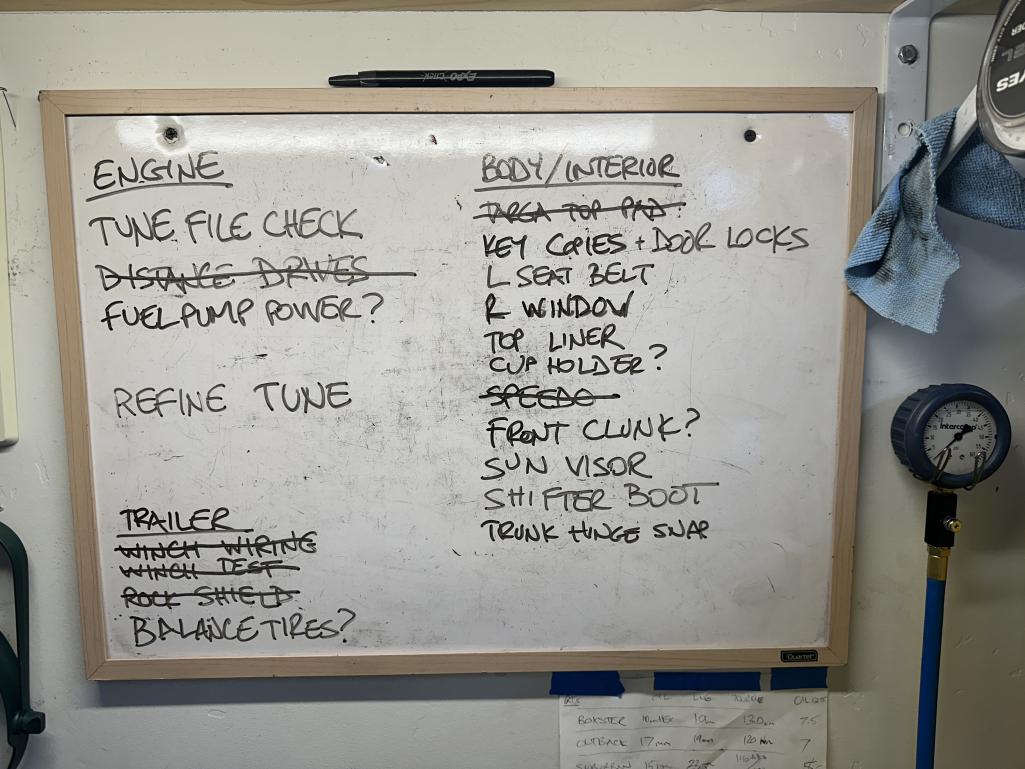 EXPO Click
ENGINE
TUNE FILE CHECK
DISTANCE DRIVES
FUEL PUMP POWER?
REFINE TUNE
TRAILER
WINCH WIRING
WINCH TEST
ROCK SHIELD
BALANCE TIRES?
BODY/INTERIOR
TARGA TOP PAD
KEY COPIES + DOOR LOCKS
L SEAT BELT
R WINDOW
TOP LINER
CUP HOLDER?
SPEEDO
FRONT CLUNK?
SUN VISOR
SHIFTER BOOT
TRUNK HINGE SNAP
Quartet
BOXSTER 19mm 7.5
OUTBACK 17mm 19mm 7
SUBURBAN
Intercomp
YES